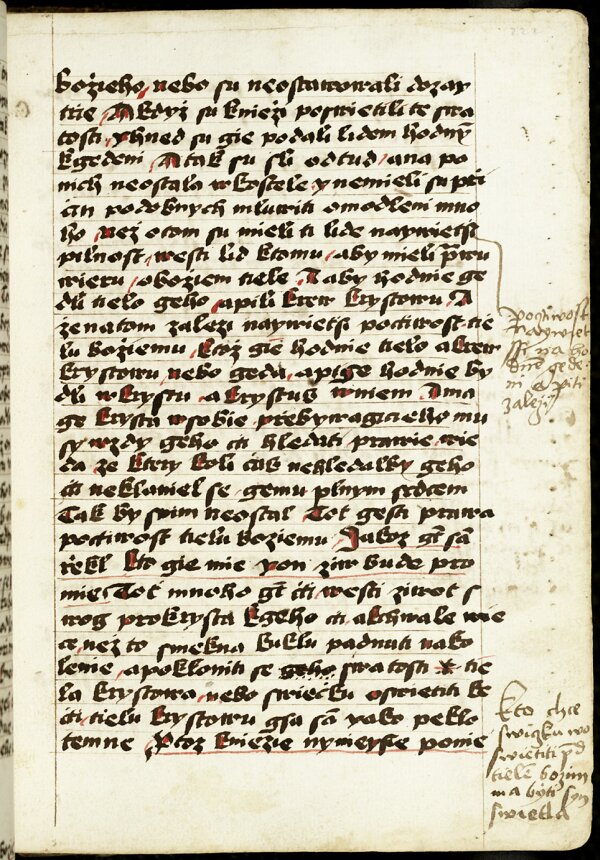 božieho, nebo su neostawowali dozay
trie A kdyż su kněži poswietili te swa
tosti, yhned su gie podali lidem hodny
kgedeni A tak su sli odtud, ana po
nich neostala wkostele, y nemieli su pri
podobnych mluwiti omodleni mno
ho, než otom su mieli ti lide naywietsi
pilnost, westi lid ktomu, aby mieli prwu
wieru, oboziem tiele, A aby hodnie ge
dli tielo geho, apili krew krystowu, A
ze natom zalezi naywietsi poctiwost tie
lu božiemu, ktož gie hodnie tielo a krew
krystowu, nebo geda, apige hodnie by
dli wkrystu, akrystus wniem A ma
ge krysta wsobie, přebywagicieho mu
sy wzdy geho cti hledati, prawie, wie
da, ze ktery koli čas nehledalby geho
cti neklaniel se, gemu plnym srdcem
Tak by swim neostal Tot gest prawa
poctiwost tielu boziemu, Jakoz gt sam
řekl, kto gie mie, yon ziw bude pro
mie Tot mnoho gt cti, westi ziwot s
wog prokrysta kgeho cti akchwale wie
ce, než to smekna kuklu padnuti nako
lenie, apokloniti se swatosti tie
la krystowa, nebo swiečku oswietiti ke
cti, tielu krystowu gsa sam yako peklo
temne, Ptoz kniežie nyneysie ponie
Pocztiwost
naywiet
ssi na ho
dne gede
ni a piti
zalezy
kto chce
swiczku wo
swietiti pd
tiele bozim
ma byti syn
swietla